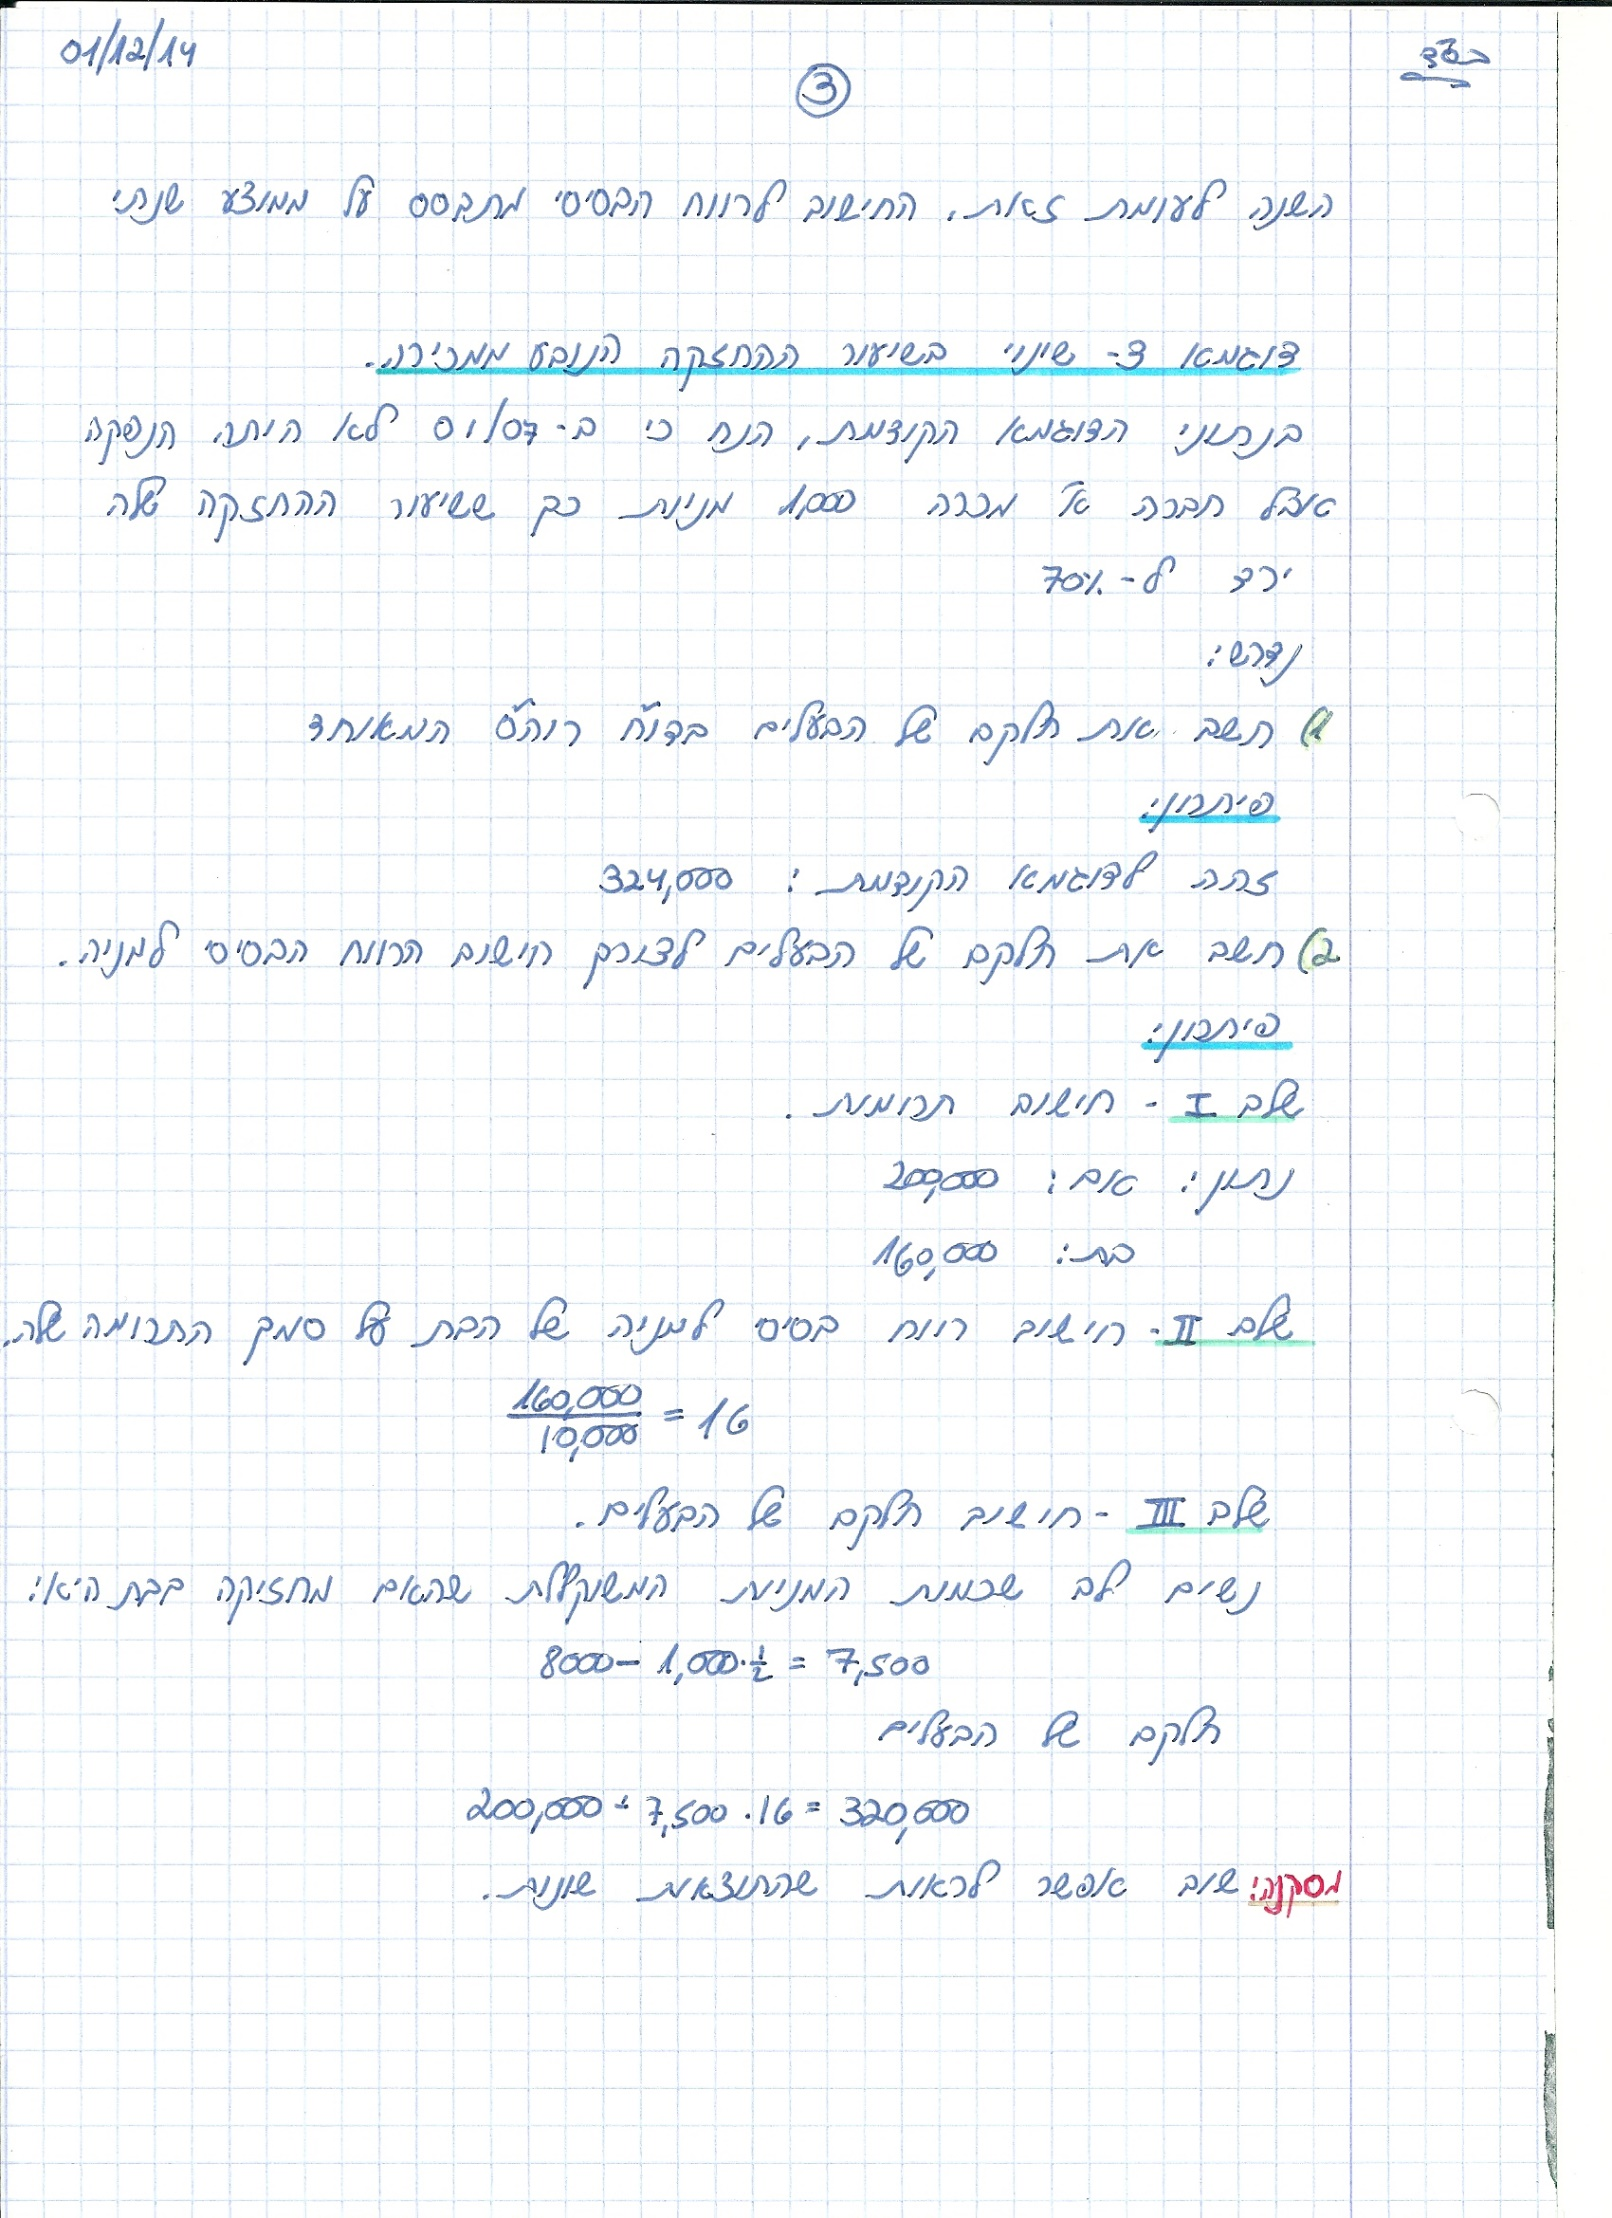 01/12/14
בס"ד
3
השנה לעומת זאת, החישוב לרווח הבסיסי מתבסס על ממוצע שנתי
דוגמא ד- שינוי בשיעור ההחזקה הנובע ממכירה.
בנתוני הדוגמא הקודמת, הנח כי ב-01/07 לא היתה הנפקה
אצל חברה א' מכרה 1,000 מניות כך ששיעור ההחזקה שלה
ירד ל-70%
נדרש:
1) חשב את חלקם של הבעלים בדו"ח רוה"ס המאוחד
פיתרון:
זהה לדוגמא הקודמת: 324,000
2) חשב את חלקם של הבעלים לצורך חישוב הרווח הבסיסי למניה.
פיתרון:
שלב I - חישוב תרומות.
נתון: אם: 200,000
בת: 160,000
שלב II - חישוב רווח בסיסי למניה של הבת על סמך התרומה שלה.
160,000
10,000 = 16
שלב III - חישוב חלקם של הבעלים.
נשים לב שכמות המניות המשוקללת שהאם מחזיקה בבת היא:
8000 - 1,000·½ = 7,500
חלקם של הבעלים
200,000 + 7,500·16 = 320,000
מסקנה: שוב אפשר לראות שהתוצאות שונות.